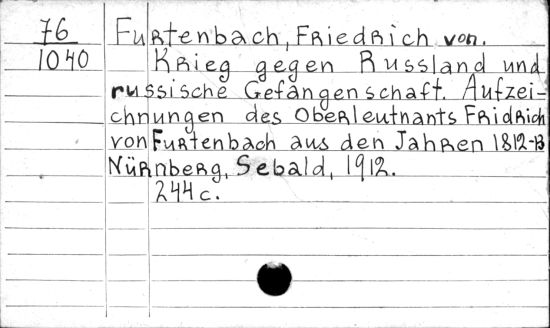 76 Furtenbach, Friedrich von.
1040 Krieg gegen Russland und
russische Gefangenschaft. Aufzei-
chnungen des Oberleutnants Fridrich
von Furtenbach aus den Jahren 1812-13
Nürnberg, Sebald, 1912.
244 c.